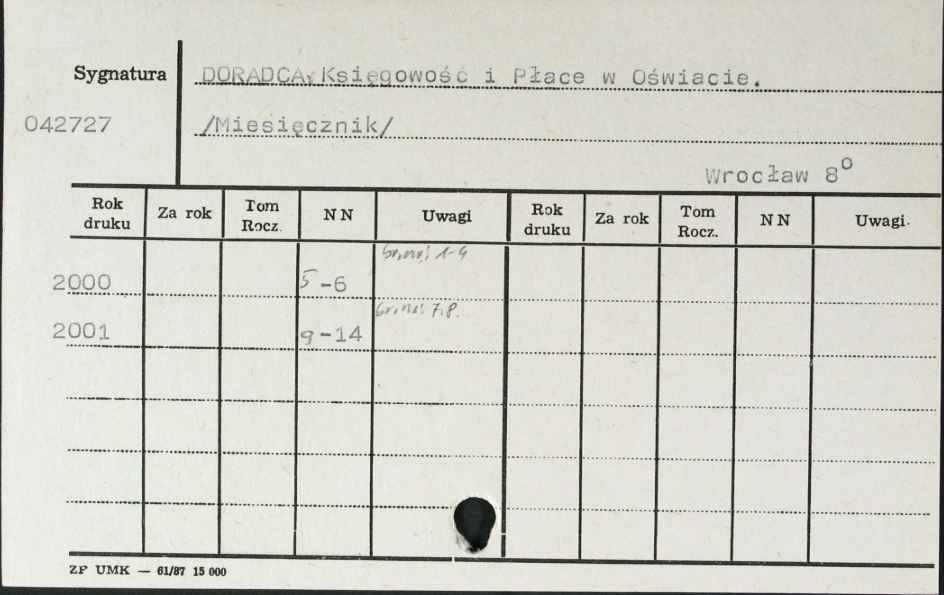 Sygnatura DORADCA, Księgowość i Płace w Oświacie.
042727 /Miesięcznik/
Wrocław 8°
Rok druku Za rok Tom Rocz. NN Uwagi Rok druku Za rok Tom Rocz. NN Uwagi
1-4
2000 5-6
7,8.
2001 9-14
ZP UMK — 61/87 15 000